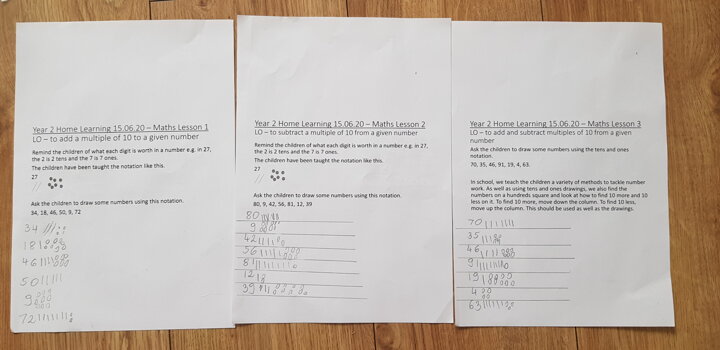 Year 2 Home Learning 15.06.20 – Maths Lesson 1
LO – to add a multiple of 10 to a given number
Remind the children of what each digit is worth in a number e.g. in 27,
the 2 is 2 tens and the 7 is 7 ones.
The children have been taught the notation like this.
27
Ask the children to draw some numbers using this notation.
34, 18, 46, 50, 9, 72
34
18
46
50
9
72
Year 2 Home Learning 15.06.20 – Maths Lesson 2
LO – to subtract a multiple of 10 from a given number
Remind the children of what each digit is worth in a number e.g. in 27,
the 2 is 2 tens and the 7 is 7 ones.
The children have been taught the notation like this.
27
Ask the children to draw some numbers using this notation.
80, 9, 42, 56, 81, 12, 39
80
9
42
56
81
12
39
Year 2 Home Learning 15.06.20 – Maths Lesson 3
LO – to add and subtract multiples of 10 from a given
number
Ask the children to draw some numbers using the tens and ones
notation.
70, 35, 46, 91, 19, 4, 63.
In school, we teach the children a variety of methods to tackle number
work. As well as using tens and ones drawings, we also find the
numbers on a hundreds square and look at how to find 10 more and 10
less on it. To find 10 more, move down the column. To find 10 less,
move up the column. This should be used as well as the drawings.
70
35
46
91
19
4
63